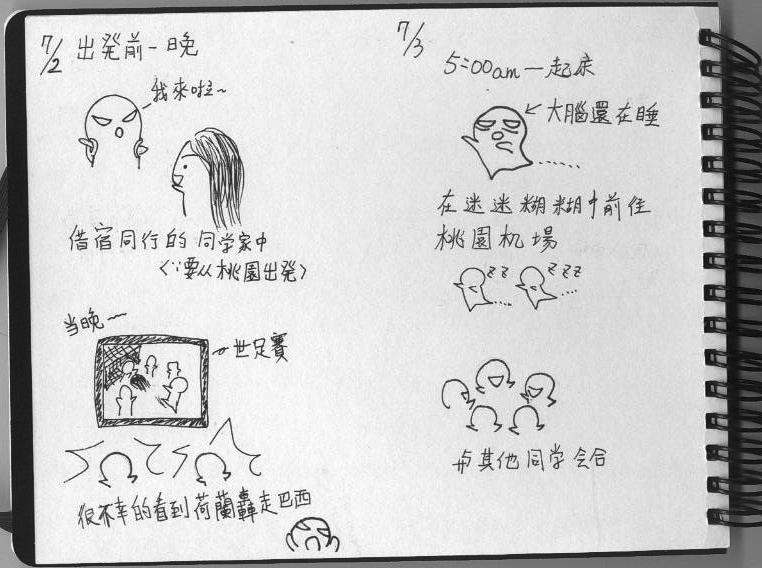 7/2 出発前一晚
我來啦~
借宿同行的同学家中
〈∵要从桃園出発〉
当晚~
世足賽
很不幸的看到荷蘭轟走巴西
7/3
5:00am一起床
←大腦還在睡
在迷迷糊糊中前往
桃園机場
z z
z z z
与其他同学会合